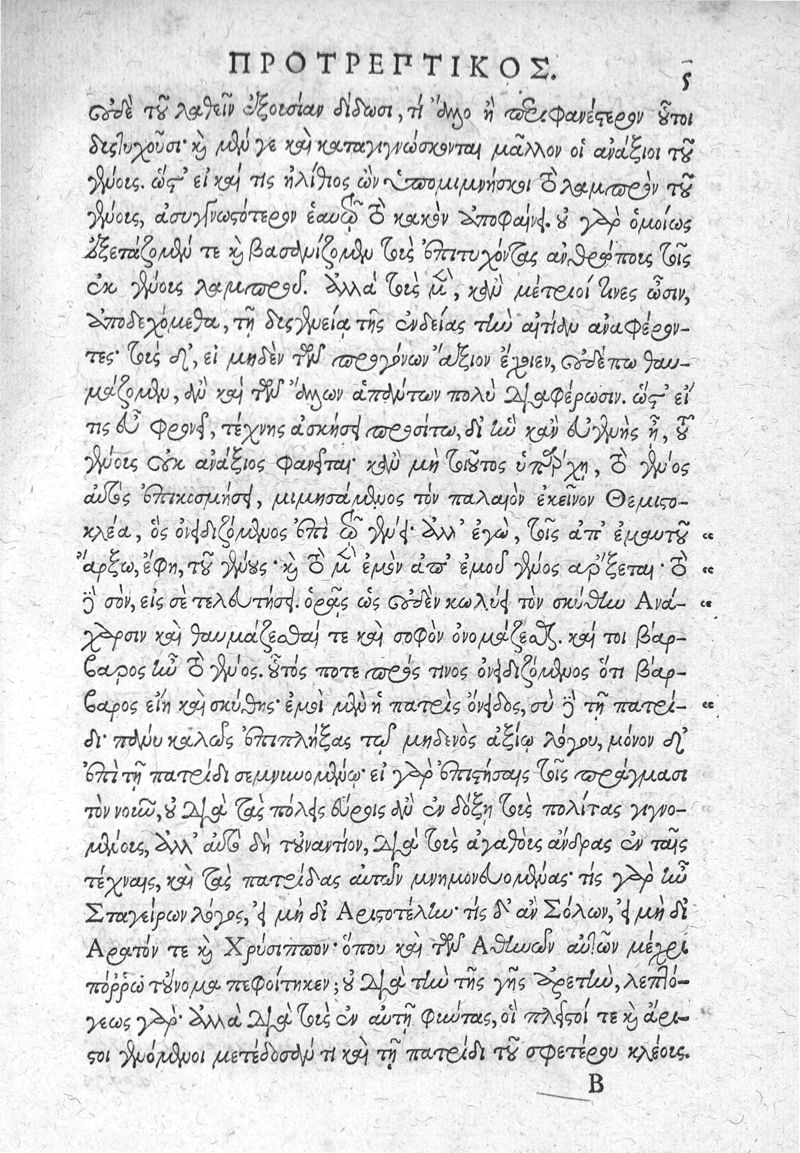 ΠΡΟΤΡΕΠΤΙΚΟΣ. 5
οὐδὲ τοῦ λαθεῖν ἐξουσίαν δίδωσι, τί ἄλλο ἢ περιφανέστερον οὗτοι
δυστυχοῦσι· καὶ μέν γε καὶ καταγιγνώσκονται μᾶλλον οἱ ἀνάξιοι τοῦ
γένους. ὥστ' εἰ καί τις ἠλίθιος ὢν ὑπομιμνήσκοι τὸ λαμπρὸν τοῦ
γένους, ἀσυγγνωστότερον ἑαυτῷ τὸ κακὸν ἀποφαίνει. οὐ γὰρ ὁμοίως
ἐξετάζομέν τε καὶ βασανίζομεν τοὺς ἐπιτυχόντας ἀνθρώπους τοῖς
ἐκ γένους λαμπροῦ. ἀλλὰ τοὺς μὲν, κἂν μέτριοί τινες ὦσιν,
ἀποδεχόμεθα, τῇ δυσγενείᾳ τῆς ἐνδείας τὴν αἰτίαν ἀναφέρον-
τες· τοὺς δ', εἰ μηδὲν τῶν προγόνων ἄξιον ἔχοιεν, οὐδέπω θαυ-
μάζομεν, ἂν καὶ τῶν ἄλλων ἁπάντων πολὺ διαφέρωσιν. ὥστ' εἴ
τις εὖ φρονεῖ, τέχνης ἀσκήσει προσίτω, δι' ἣν κἂν εὐγενὴς ᾖ, τοῦ
γένους οὐκ ἀνάξιος φανεῖται· κἂν μὴ τοιοῦτος ὑπάρχῃ, τὸ γένος
αὐτὸς ἐπικοσμήσει, μιμησάμενος τὸν παλαιὸν ἐκεῖνον Θεμιστο-
κλέα, ὃς ὀνειδιζόμενος ἐπὶ τῷ γένει· ἀλλ' ἐγὼ, τοῖς ἀπ' ἐμαυτοῦ “
ἄρξω, ἔφη, τοῦ γένους· καὶ τὸ μὲν ἐμὸν ἀπ' ἐμοῦ γένος ἄρξεται· τὸ “
δὲ σὸν, εἰς σὲ τελευτήσει. ὁρᾷς ὡς οὐδὲν κωλύει τὸν σκύθην Ἀνά- “
χαρσιν καὶ θαυμάζεσθαί τε καὶ σοφὸν ὀνομάζεσθαι. καί τοι βάρ-
βαρος ἦν τὸ γένος. οὗτός ποτε πρός τινος ὀνειδιζόμενος ὅτι βάρ-
βαρος εἴη καὶ σκύθης· ἐμοὶ μὲν ἡ πατρὶς ὄνειδος, σὺ δὲ τῇ πατρί- “
δι· πάνυ καλῶς ἐπιπλήξας τῷ μηδενὸς ἀξίῳ λόγου, μόνον δ'
ἐπὶ τῇ πατρίδι σεμνυνομένῳ· εἰ γὰρ ἐπιστήσαις τοῖς πράγμασι
τὸν νοῦν, οὐ διὰ τὰς πόλεις εὕροις ἂν ἐν δόξῃ τοὺς πολίτας γιγνο-
μένους, ἀλλ' αὐτὸ δὴ τοὐναντίον, διὰ τοὺς ἀγαθοὺς ἄνδρας ἐν ταῖς
τέχναις, καὶ τὰς πατρίδας αὐτῶν μνημονευομένας· τίς γὰρ ἦν
Σταγείρων λόγος, εἰ μὴ δι' Ἀριστοτέλην· τίς δ' ἂν Σόλων, εἰ μὴ δι'
Ἄρατόν τε καὶ Χρύσιππον· ὅπου καὶ τῶν Ἀθηνῶν αὐτῶν μέχρι
πόῤῥω τοὔνομα πεφοίτηκεν; οὐ διὰ τὴν τῆς γῆς ἀρετὴν, λεπτό-
γεως γάρ· ἀλλὰ διὰ τοὺς ἐν αὐτῇ φύντας, οἳ πλεῖστοί τε καὶ ἄρι-
στοι γενόμενοι μετέδοσάν τι καὶ τῇ πατρίδι τοῦ σφετέρου κλέους.
Β